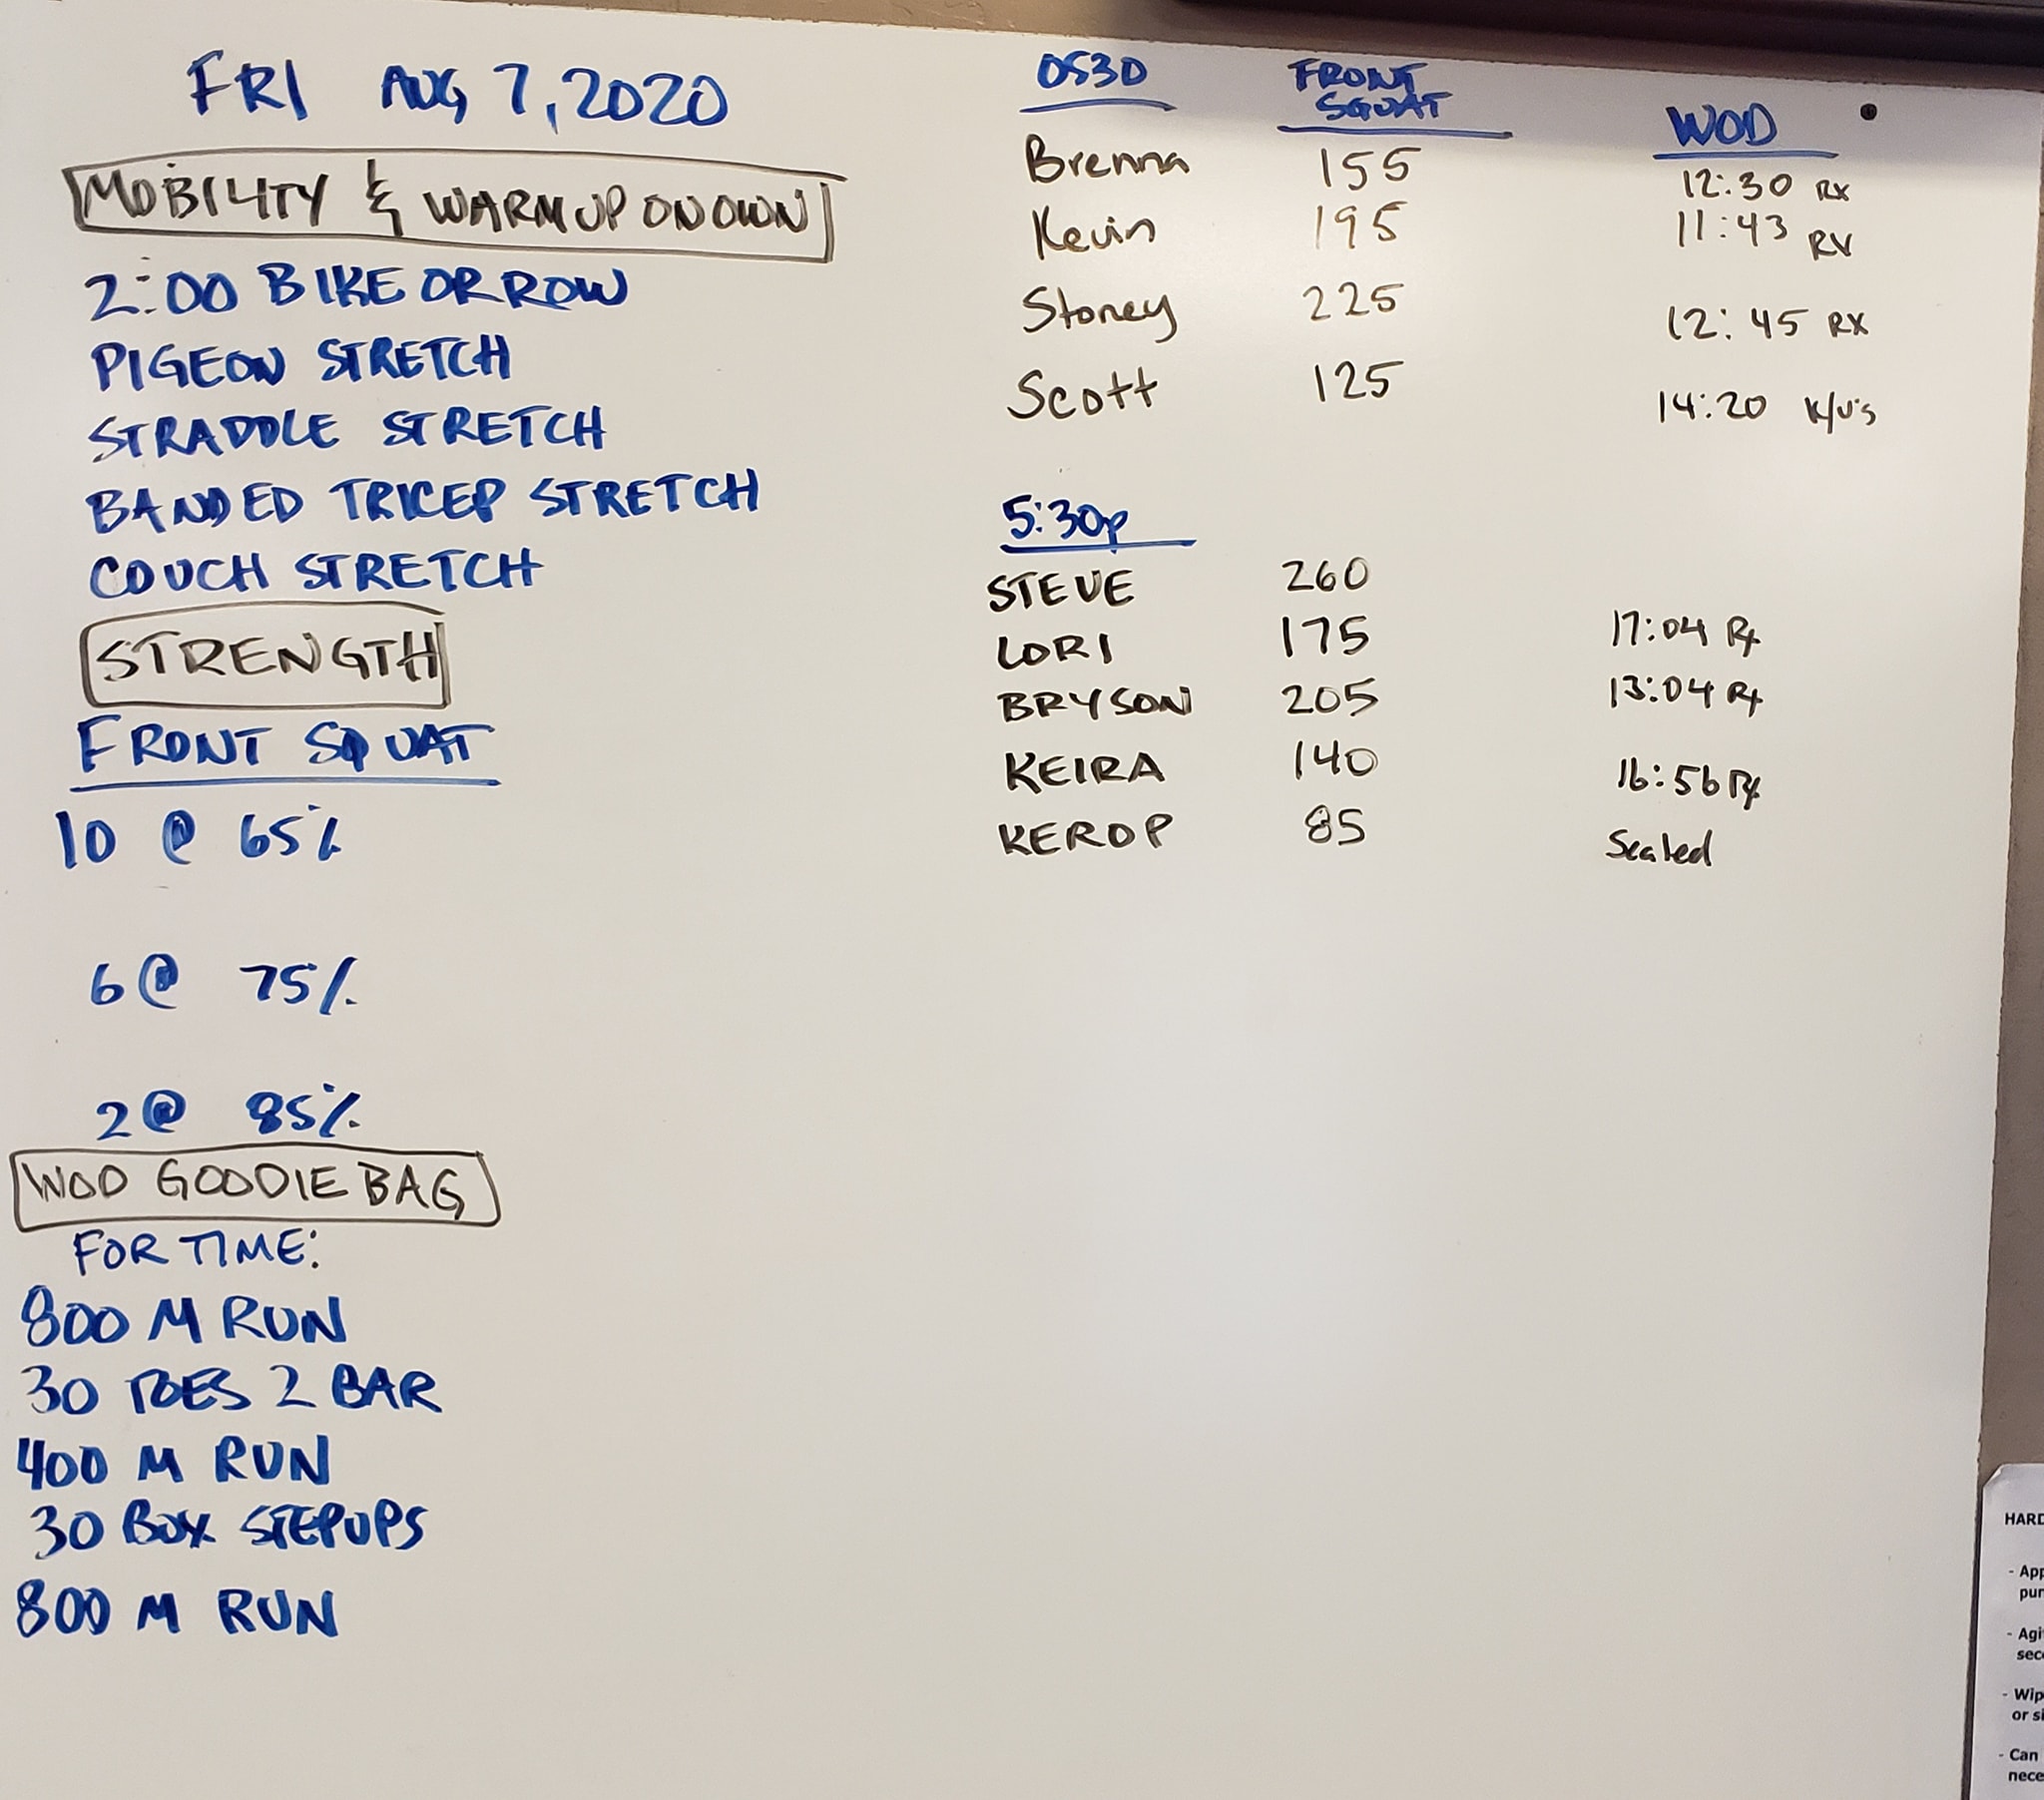 FRI AUG 7, 2020
MOBILITY & WARMUP ON OWN
2:00 BIKE OR ROW
PIGEON STRETCH
STRADDLE STRETCH
BANDED TRICEP STRETCH
COUCH STRETCH
STRENGTH
FRONT SQUAT
10 @ 65%
6 @ 75%
2 @ 85%
WOD GOODIE BAG
FOR TIME:
800 M RUN
30 TOES 2 BAR
400 M RUN
30 BOX STEPUPS
800 M RUN
0530 FRONT SQUAT WOD
Brenna 155 12:30 RX
Kevin 195 11:43 RX
Stoney 225 12:45 RX
Scott 125 14:20 K/U's
5:30p
STEVE 260
LORI 175 17:04 Rx
BRYSON 205 13:04 Rx
KEIRA 140 16:56 Rx
KEROP 85 Scaled
HARD
- App
pur
- Agi
sec
- Wip
or si
- Can
nece